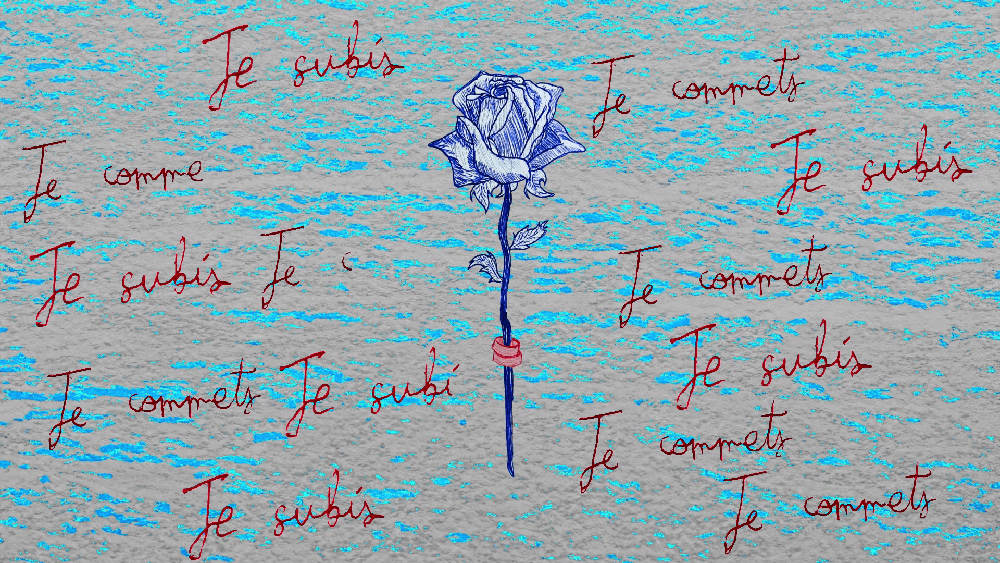 Je subis
Je commets
Je comme
Je subis
Je subis
Je c
Je commets
Je subis
Je commets
Je subi
Je commets
Je subis
Je commets